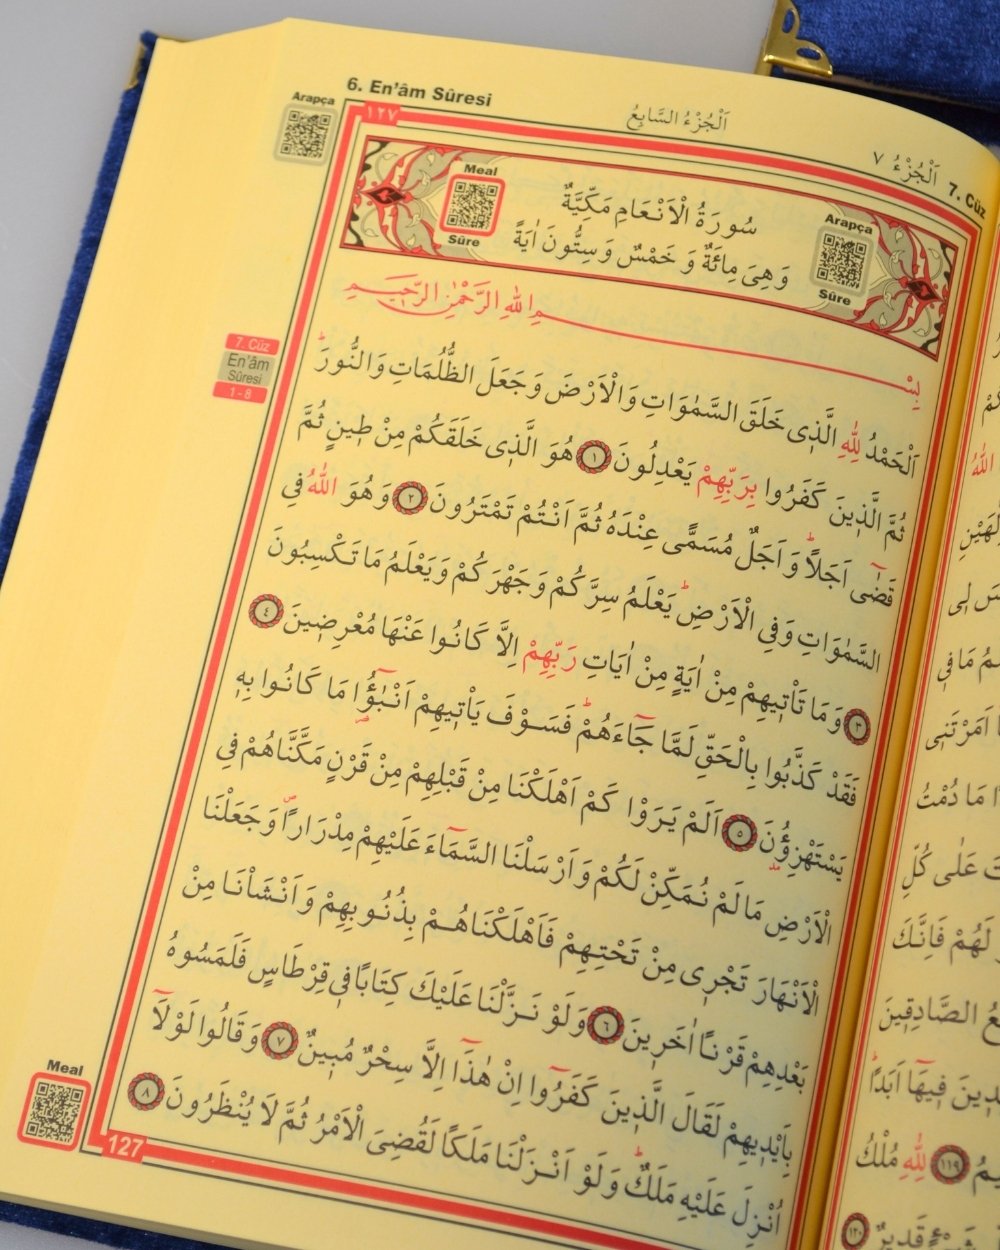 6. En'âm Sûresi
اَلْجُزْءُ السَّابِعُ
اَلْجُزْءُ ٧
7. Cüz
Arapça
١٢٧
Meal
Sûre
سُورَةُ الْاَنْعَامِ مَكِّيَّةٌ
وَهِىَ مِائَةٌ وَ خَمْسٌ وَسِتُّونَ اٰيَةً
Arapça
Sûre
بِسْمِ اللّٰهِ الرَّحْمٰنِ الرَّحٖيمِ
7. Cüz
En'âm
Sûresi
1 - 8
اَلْحَمْدُ لِلّٰهِ الَّذٖى خَلَقَ السَّمٰوَاتِ وَالْاَرْضَ وَجَعَلَ الظُّلُمَاتِ وَالنُّورَ
ثُمَّ الَّذٖينَ كَفَرُوا بِرَبِّهِمْ يَعْدِلُونَ ﴿١﴾ هُوَ الَّذٖى خَلَقَكُمْ مِنْ طٖينٍ ثُمَّ
قَضٰٓى اَجَلًاؕ وَاَجَلٌ مُسَمًّى عِنْدَهُ ثُمَّ اَنْتُمْ تَمْتَرُونَ ﴿٢﴾ وَهُوَ اللّٰهُ فِى
السَّمٰوَاتِ وَفِى الْاَرْضِؕ يَعْلَمُ سِرَّكُمْ وَجَهْرَكُمْ وَيَعْلَمُ مَا تَكْسِبُونَ
﴿٣﴾ وَمَا تَاْتٖيهِمْ مِنْ اٰيَةٍ مِنْ اٰيَاتِ رَبِّهِمْ اِلَّا كَانُوا عَنْهَا مُعْرِضٖينَ ﴿٤﴾
فَقَدْ كَذَّبُوا بِالْحَقِّ لَمَّا جَٓاءَهُمْؕ فَسَوْفَ يَاْتٖيهِمْ اَنْبٰٓؤُا مَا كَانُوا بِهٖ
يَسْتَهْزِؤُنَ ﴿٥﴾ اَلَمْ يَرَوْا كَمْ اَهْلَكْنَا مِنْ قَبْلِهِمْ مِنْ قَرْنٍ مَكَّنَّاهُمْ فِى
الْاَرْضِ مَا لَمْ نُمَكِّنْ لَكُمْ وَاَرْسَلْنَا السَّمَٓاءَ عَلَيْهِمْ مِدْرَارًاࣕ وَجَعَلْنَا
الْاَنْهَارَ تَجْرٖى مِنْ تَحْتِهِمْ فَاَهْلَكْنَاهُمْ بِذُنُوبِهِمْ وَاَنْشَاْنَا مِنْ
بَعْدِهِمْ قَرْنًا اٰخَرٖينَ ﴿٦﴾ وَلَوْ نَزَّلْنَا عَلَيْكَ كِتَابًا فٖى قِرْطَاسٍ فَلَمَسُوهُ
بِاَيْدٖيهِمْ لَقَالَ الَّذٖينَ كَفَرُٓوا اِنْ هٰذَٓا اِلَّا سِحْرٌ مُبٖينٌ ﴿٧﴾ وَقَالُوا لَوْلَٓا
اُنْزِلَ عَلَيْهِ مَلَكٌؕ وَلَوْ اَنْزَلْنَا مَلَكًا لَقُضِىَ الْاَمْرُ ثُمَّ لَا يُنْظَرُونَ ﴿٨﴾
Meal
127
اللّٰهُ
مَا فٖى
مَا دُمْتُ
عَلٰى كُلِّ
لَهُمْ فَاِنَّكَ
الصَّادِقٖينَ
فٖيهَٓا اَبَدًاؕ
﴿١١٩﴾ لِلّٰهِ مُلْكُ
قَدٖيرٌ ﴿١٢٠﴾